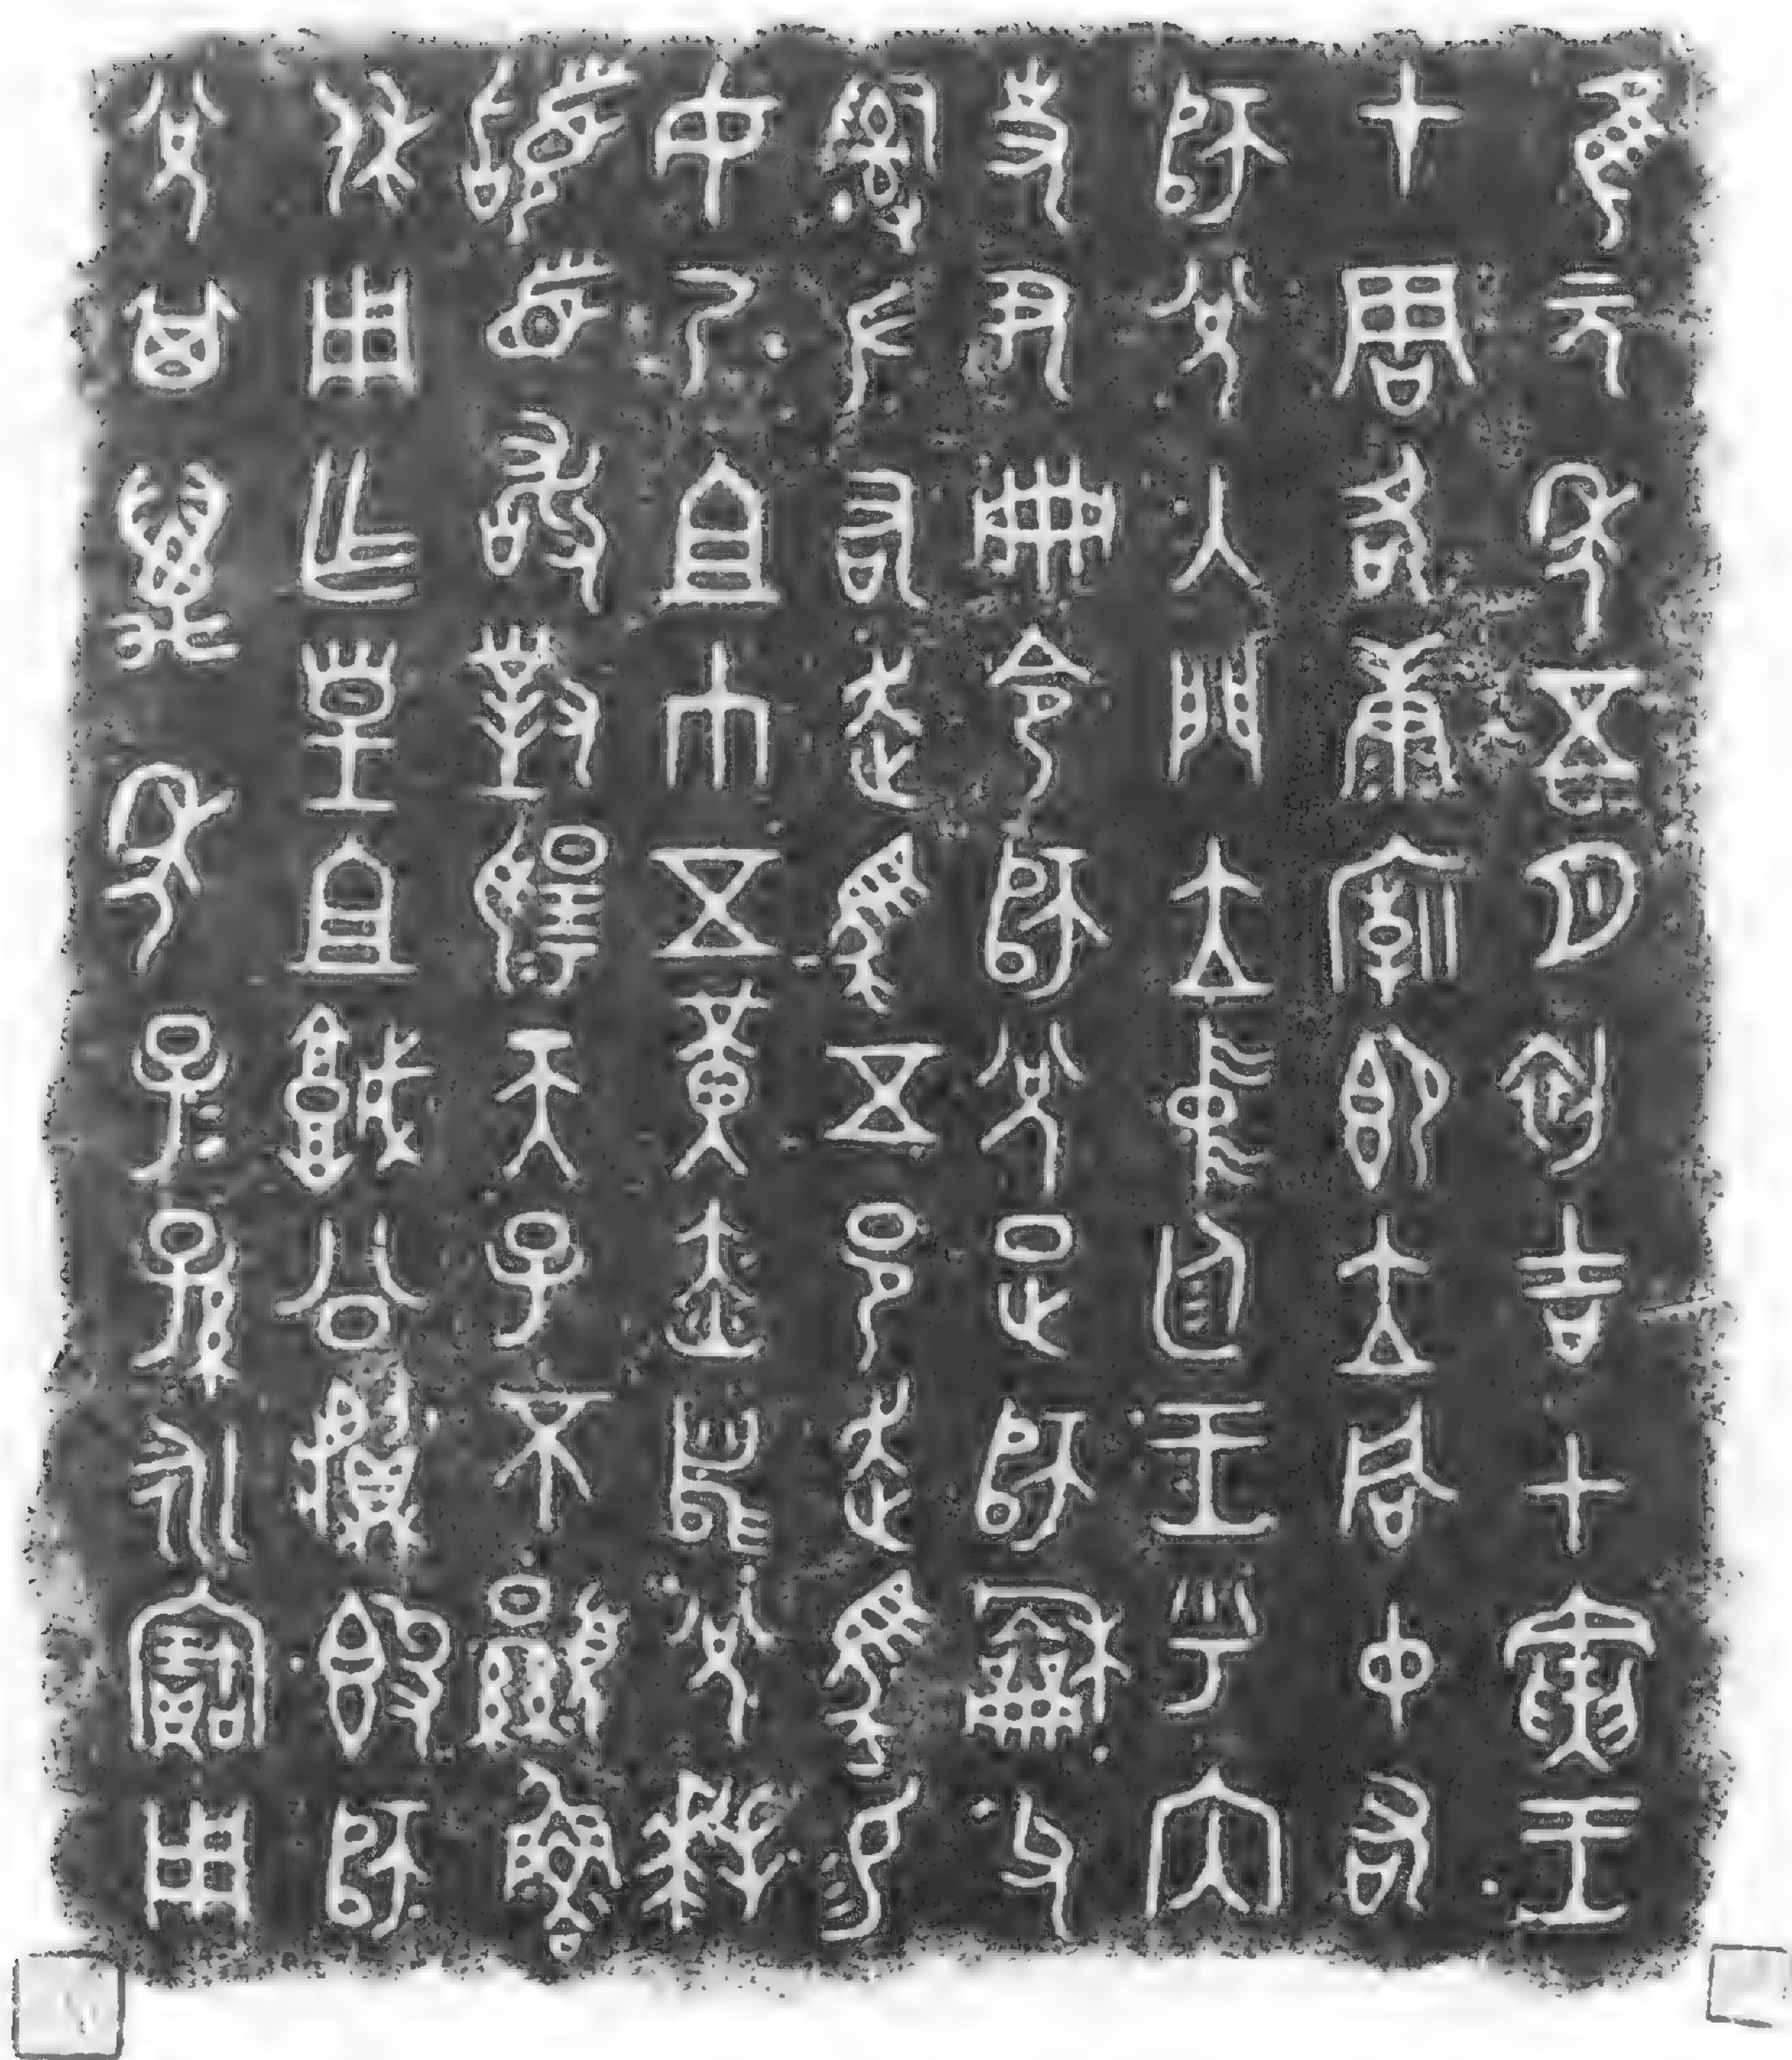 隹元年五月初吉甲寅王
才周各康廟即立同中右
師兌入門立中廷王乎內
史尹册令師兌疋師龢父
𤔲左右走馬五邑走馬易
女乃且巾五黃赤舄兌拜
𩒨首敢對揚天子不顯魯
休用乍皇且城公𩰬簋師
兌其萬年子=孫永寶用